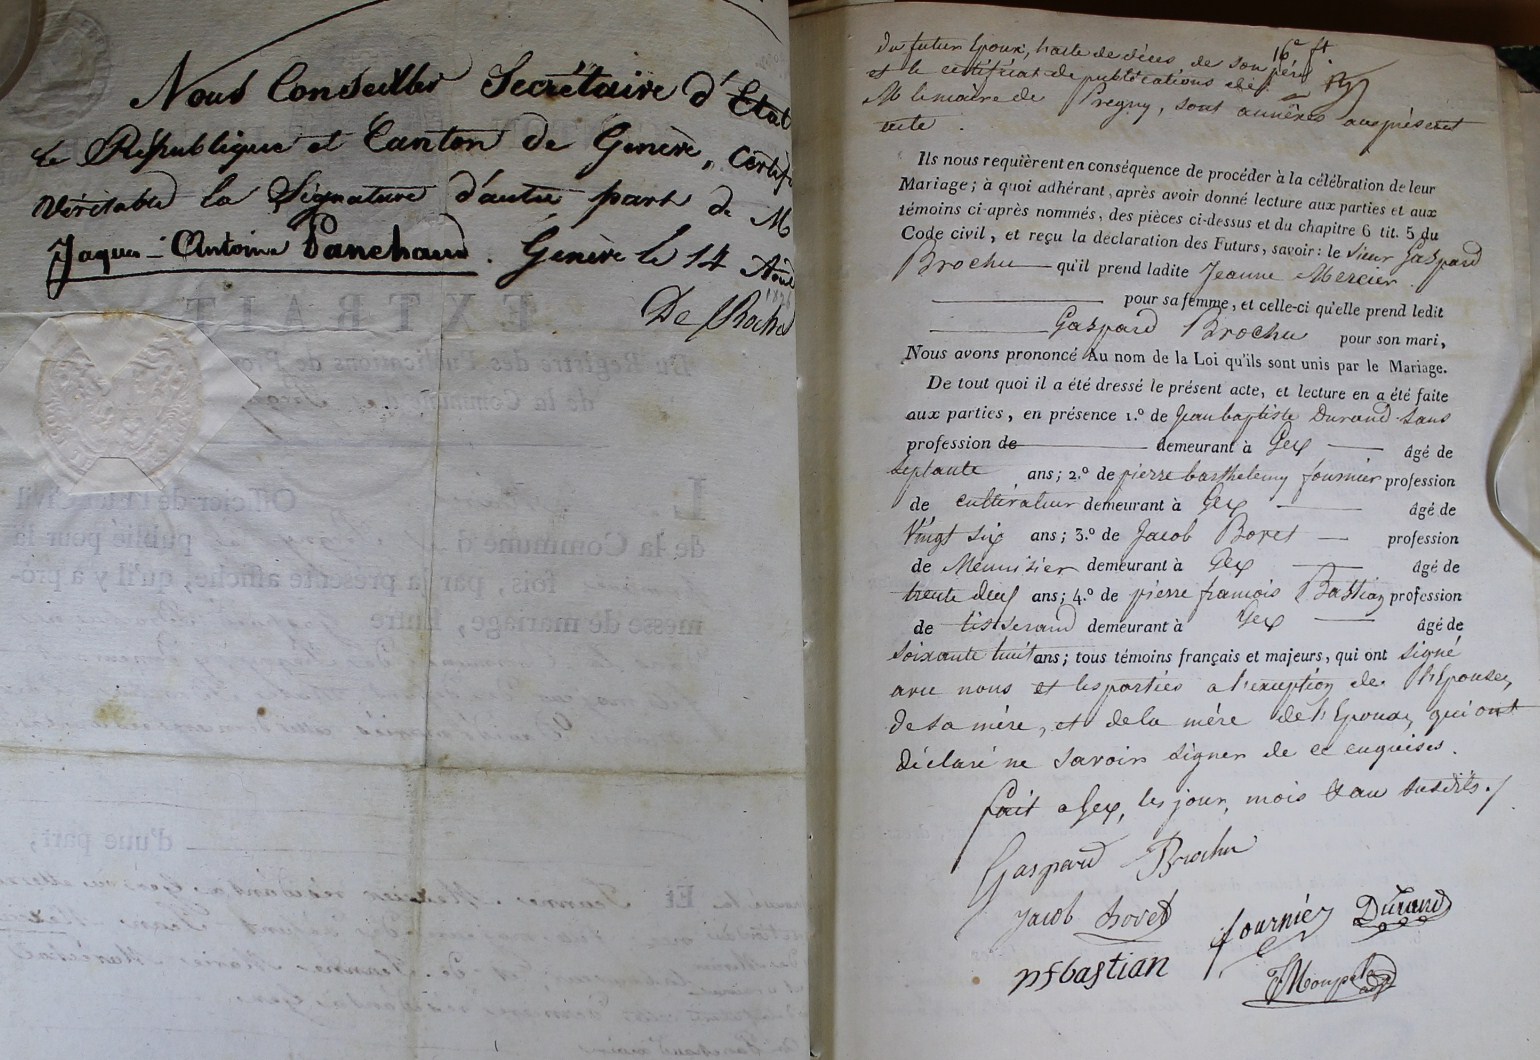 Nous Conseiller Secrétaire d'Etat
de République et Canton de Genève, Certif
Véritable la Signature d'autre part de M
Jaques-Antoine Panchaud. Genève le 14 Août
De Roche
EXTRAIT
Du Registre des Publications de
de la Commune
L Officier de l'Etat Civil
de la Commune d publié pour la
fois, par la présente affiche, qu'il y a pro-
messe de mariage, Entre
d'une part;
Et Jeanne Mercier
du futur Epoux, l'acte de décès de son père
et le certificat de publications de
M le maire de Pregny, sont annexés au présent
acte.
Ils nous requièrent en conséquence de procéder à la célébration de leur
Mariage; à quoi adhérant, après avoir donné lecture aux parties et aux
témoins ci-après nommés, des pièces ci-dessus et du chapitre 6 tit. 5 du
Code civil, et reçu la déclaration des Futurs, savoir: le sieur Gaspard
Brochu qu'il prend ladite Jeanne Mercier
pour sa femme, et celle-ci qu'elle prend ledit
Gaspard Brochu pour son mari,
Nous avons prononcé Au nom de la Loi qu'ils sont unis par le Mariage.
De tout quoi il a été dressé le présent acte, et lecture en a été faite
aux parties, en présence 1.º de Jean baptiste Durand sans
profession de demeurant à Gex âgé de
septante ans; 2.º de pierre barthelemy fournier profession
de cultivateur demeurant à Gex âgé de
Vingt six ans; 3.º de Jacob Boret profession
de Menuisier demeurant à Gex âgé de
trente deux ans; 4.º de pierre francois Bastian profession
de tisserand demeurant à Gex âgé de
soixante huit ans; tous témoins français et majeurs, qui ont signé
avec nous et les parties a l'exception de l'Epouse,
de sa mére, et de la mére de l'Epoux, qui ont
déclaré ne savoir signer de ce enquises.
fait a Gex, les jour, mois & an susdits./
Gaspard Brochu
Jacob Bovet
fournier Durand
pfbastian